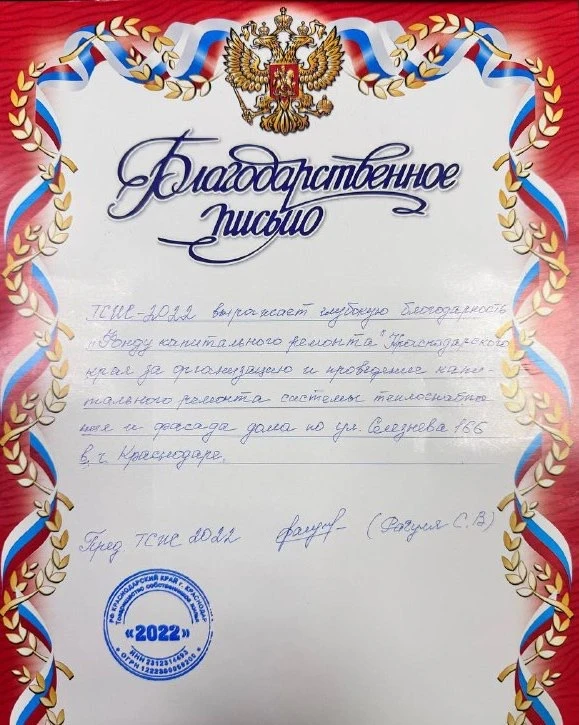 Благодарственное
письмо
ТСЖ-2022 выражает глубокую благодарность
"Фонду капитального ремонта" Краснодарского
края за организацию и проведение капи-
тального ремонта системы теплоснабже
ния и фасада дома по ул. Селезнева 166
в г. Краснодаре.
Пред. ТСЖ 2022 (Рагуля С.В)
РФ КРАСНОДАРСКИЙ КРАЙ г. КРАСНОДАР
Товарищество собственников жилья
«2022»
ИНН 2312314493
ОГРН